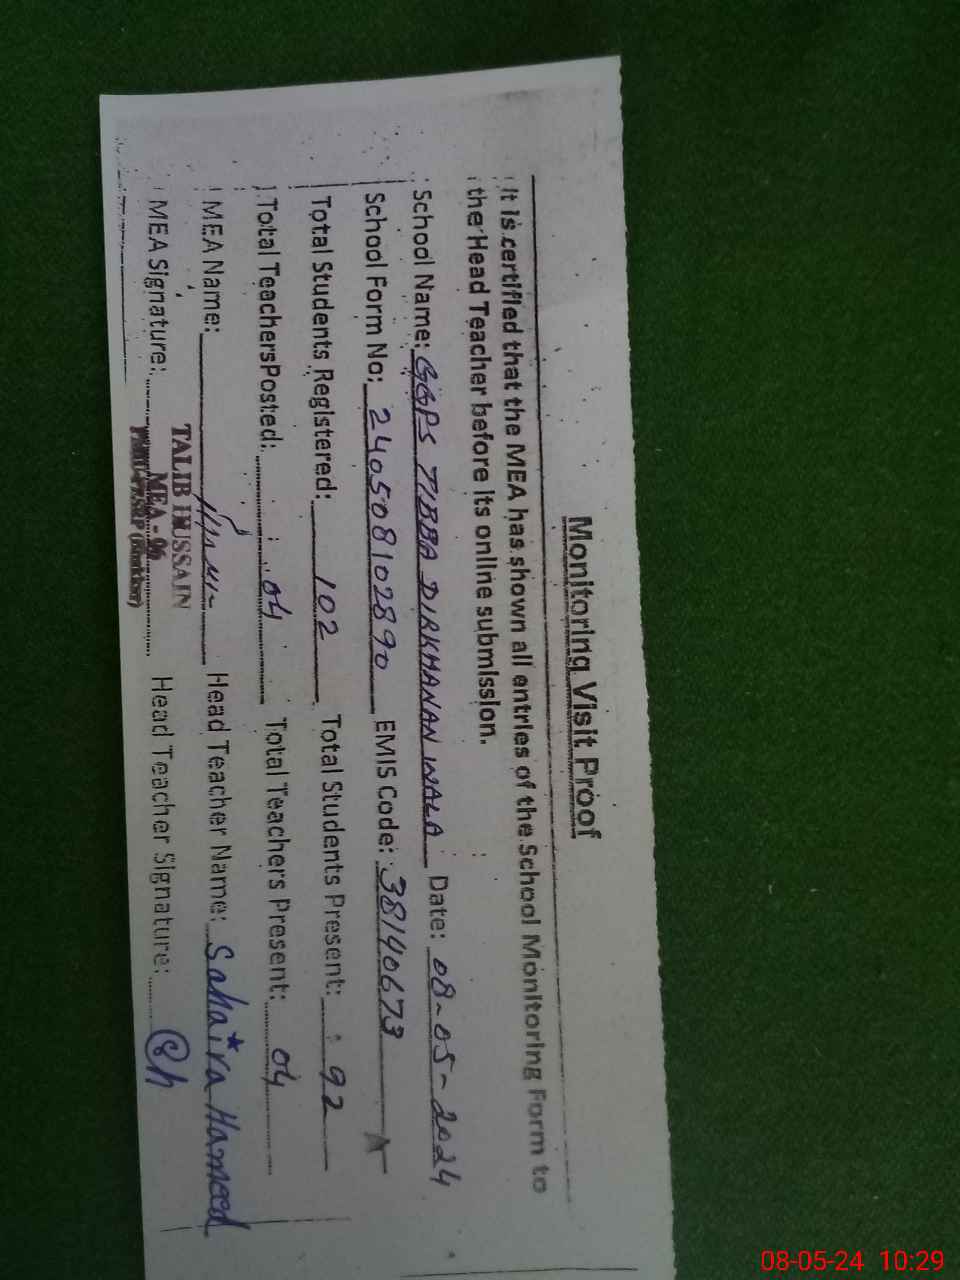 Monitoring Visit Proof
It is certified that the MEA has shown all entries of the School Monitoring Form to
the Head Teacher before its online submission.
School Name: GGPS TIBBA DIRKHANAN WALA Date: 08-05-2024
School Form No: 240508102890 EMIS Code: 38140673
Total Students Registered: 102 Total Students Present: 92
Total TeachersPosted: 04 Total Teachers Present: 04
MEA Name: Head Teacher Name: Sahaira Hameed
MEA Signature: Head Teacher Signature:
TALIB HUSSAIN
MEA - 96
08-05-24 10:29